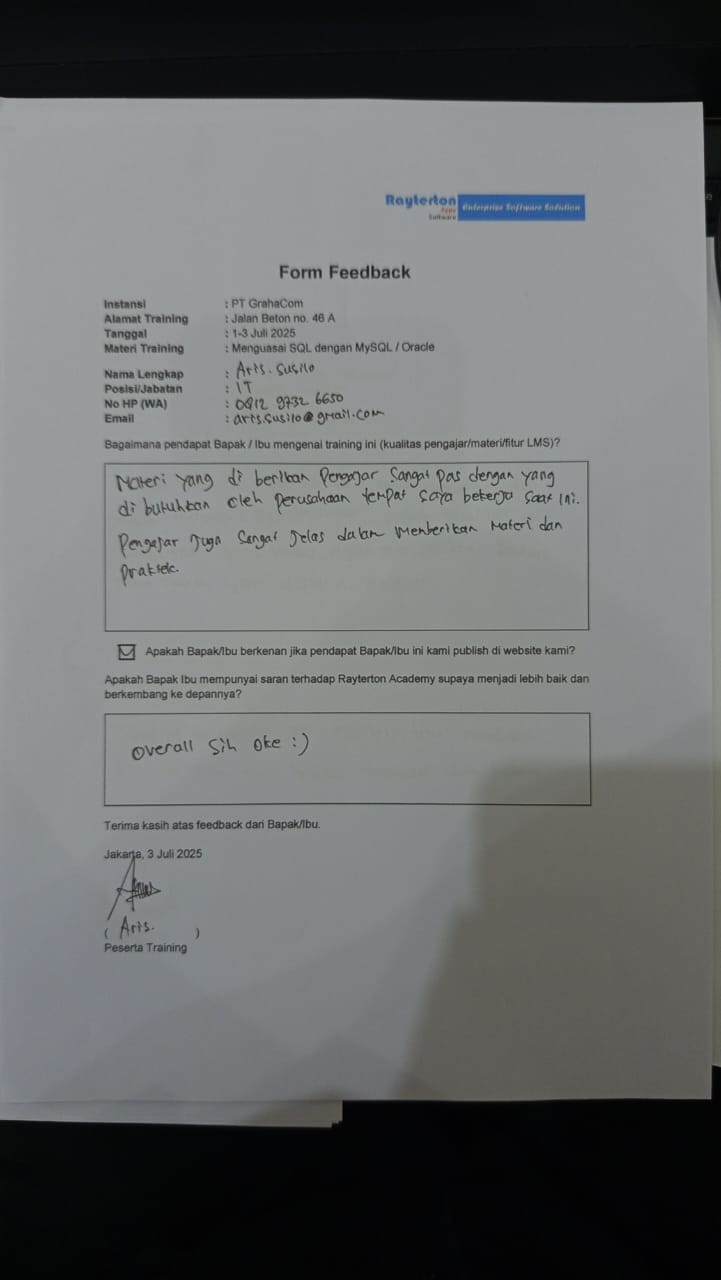 Rayterton
Apps
Software
Enterprise Software Solution
Form Feedback
Instansi : PT GrahaCom
Alamat Training : Jalan Beton no. 46 A
Tanggal : 1-3 Juli 2025
Materi Training : Menguasai SQL dengan MySQL / Oracle
Nama Lengkap : Aris. Susilo
Posisi/Jabatan : IT
No HP (WA) : 0812 9732 6650
Email : aris.susilo@gmail.com
Bagaimana pendapat Bapak / Ibu mengenai training ini (kualitas pengajar/materi/fitur LMS)?
Materi yang di berikan Pengajar Sangat pas dengan yang
di butuhkan oleh perusahaan tempat saya bekerja saat ini.
Pengajar Juga Sangat Jelas dalam Memberikan Materi dan
Praktek.
Apakah Bapak/Ibu berkenan jika pendapat Bapak/Ibu ini kami publish di website kami?
Apakah Bapak Ibu mempunyai saran terhadap Rayterton Academy supaya menjadi lebih baik dan
berkembang ke depannya?
Overall Sih Oke :)
Terima kasih atas feedback dari Bapak/Ibu.
Jakarta, 3 Juli 2025
( Aris. )
Peserta Training